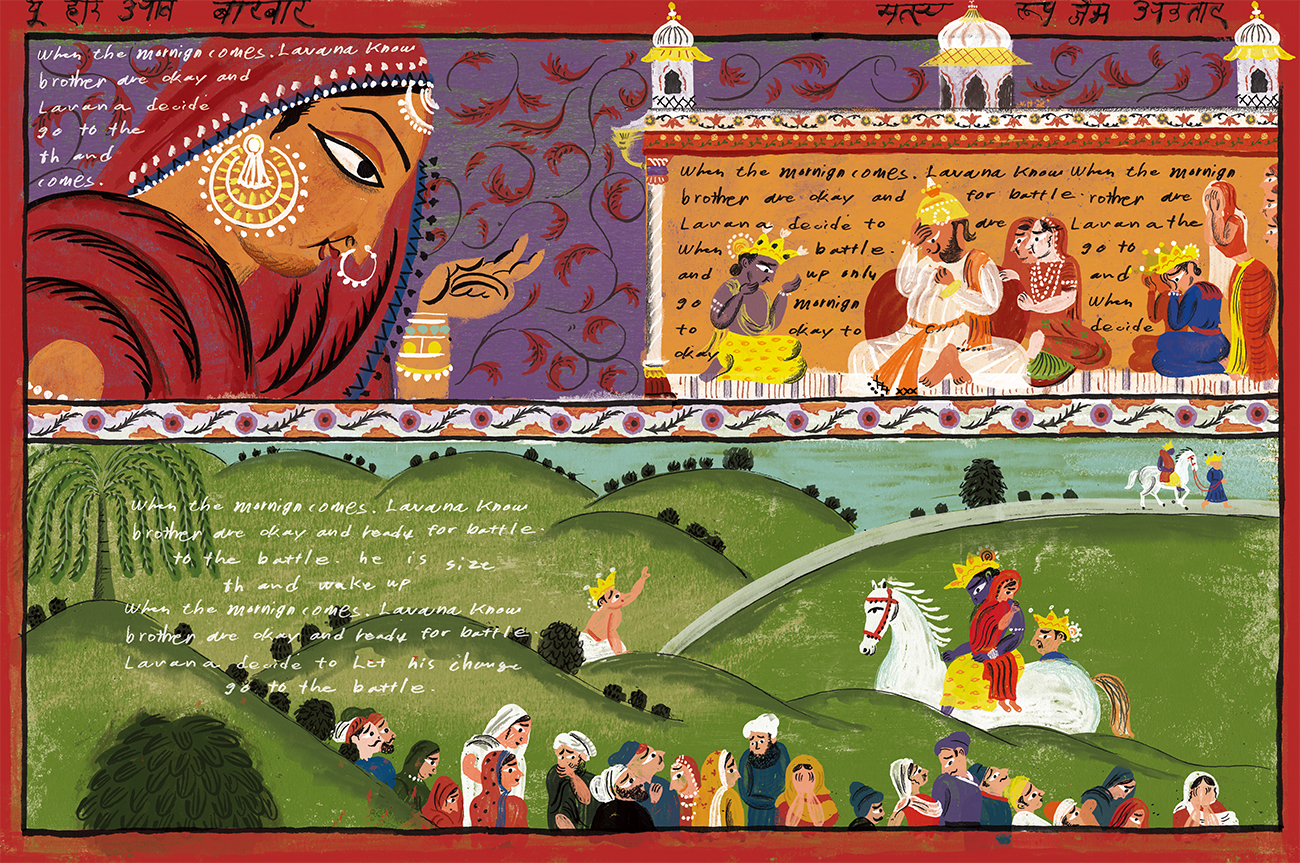 यू हारि उपाव बारबार
मत्स्य रूप जेम अवतार
When the mornign comes. Lavana Know
brother are okay and
Lavana decide
go to the
th and
comes.
When the mornign comes. Lavana Know When the mornign
brother are okay and for battle. rother are
Lavana decide to are Lavana the
When battle. go to
and up only and
go mornign When
to okay to decide
okay
When the mornign comes. Lavana Know
brother are okay and ready for battle.
to the battle. he is size
th and wake up
When the mornign comes. Lavana Know
brother are okay and ready for battle
Lavana decide to Let his change
go to the battle.